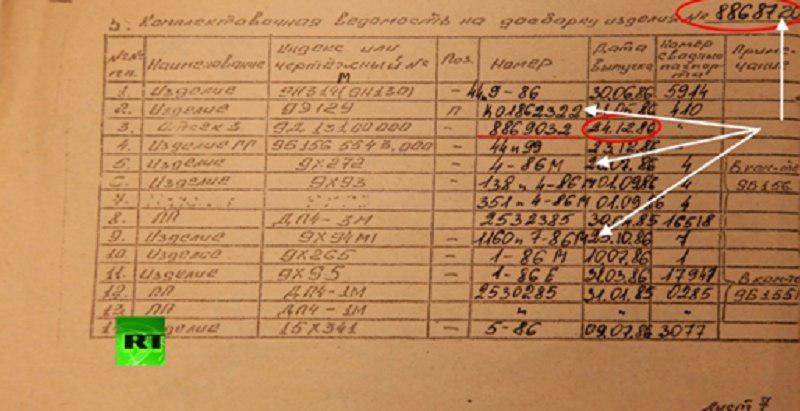 5. Комплектовочная ведомость на досборку изделия № 8868720
№№ п.п. Наименование Индекс или чертёжный № Поз. Номер Дата выпуска Номер сводного паспорта Примечание
1. Изделие 9Н314М (9Н130) — 44.9-86 30.06.86 5914
2. Изделие 9Э129 П К01862322 .06.86 410
3. Отсек 3 9Д 13100000 — 8869032 24.12.86 "
4. Изделие РГ 9Б156 — 44и99 23.12.86 "
5. Изделие 9Х272 — 4-86М .07.86 4 В ком-те
6. Изделие 9Х93 — 138и 4-86М 01.09.86 4 9Б156
7. 351и 4-86М 01.09.86 4
8. ПП ДП4-1М 2532385 30.85 16518
9. Изделие 9Х94М1 — 1160и 7-86М 25.10.86 1
10. Изделие 9Х265 — 1-86М 10.07.86 1
11. Изделие 9Х95 — 1-86Е 31.03.86 17941 В ком-те
12. ПП ДП4-1М 2530285 31.01.85 0285 9Б155
13. ПП ДП4-1М " " "
Изделие 15Х341 — 5-86 09.07.86 3077
RT
Лист 7